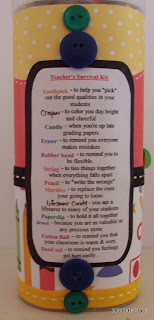 Teacher's Survival Kit
Toothpick - to help you "pick"
out the good qualities in your
students
Crayon - to color you day bright
and cheerful
Candle - when you're up late
grading papers
Eraser - to remind you everyone
makes mistakes
Rubber band - to remind you to
be flexible.
String - to ties things together
when everything falls apart
Pencil - to "write the wrongs"
Marbles - to replace the ones
your going to loose.
Lifesaver Candy - you are a
lifesaver to many of your students
Paperclip - to hold it all together
Jewel - because you are as valuable as
any precious stone
Cotton Ball - to remind you that
your classroom is warm & cozy
Band aid - to remind you feelings
get hurt easily.